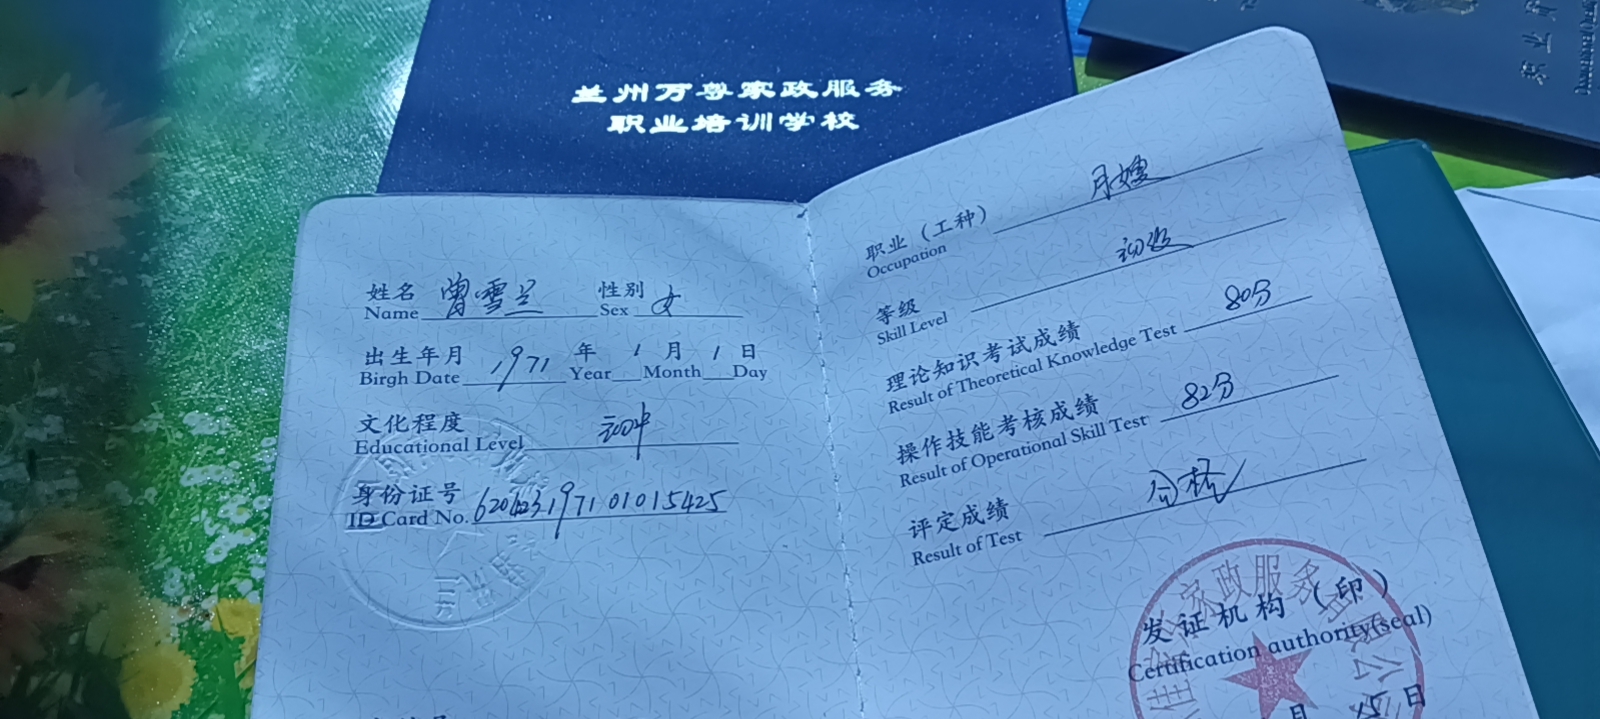 兰州万尊家政服务
职业培训学校
姓名 曾雪兰 性别 女
Name Sex
出生年月 1971 年 1 月 1 日
Birgh Date Year Month Day
文化程度 初中
Educational Level
身份证号
ID Card No. 620423197101015425
职业（工种） 月嫂
Occupation
等级 初级
Skill Level
理论知识考试成绩 80分
Result of Theoretical Knowledge Test
操作技能考核成绩 82分
Result of Operational Skill Test
评定成绩 合格
Result of Test
家政服务
发证机构（印）
Certification authority(seal)
月 15 日
职业